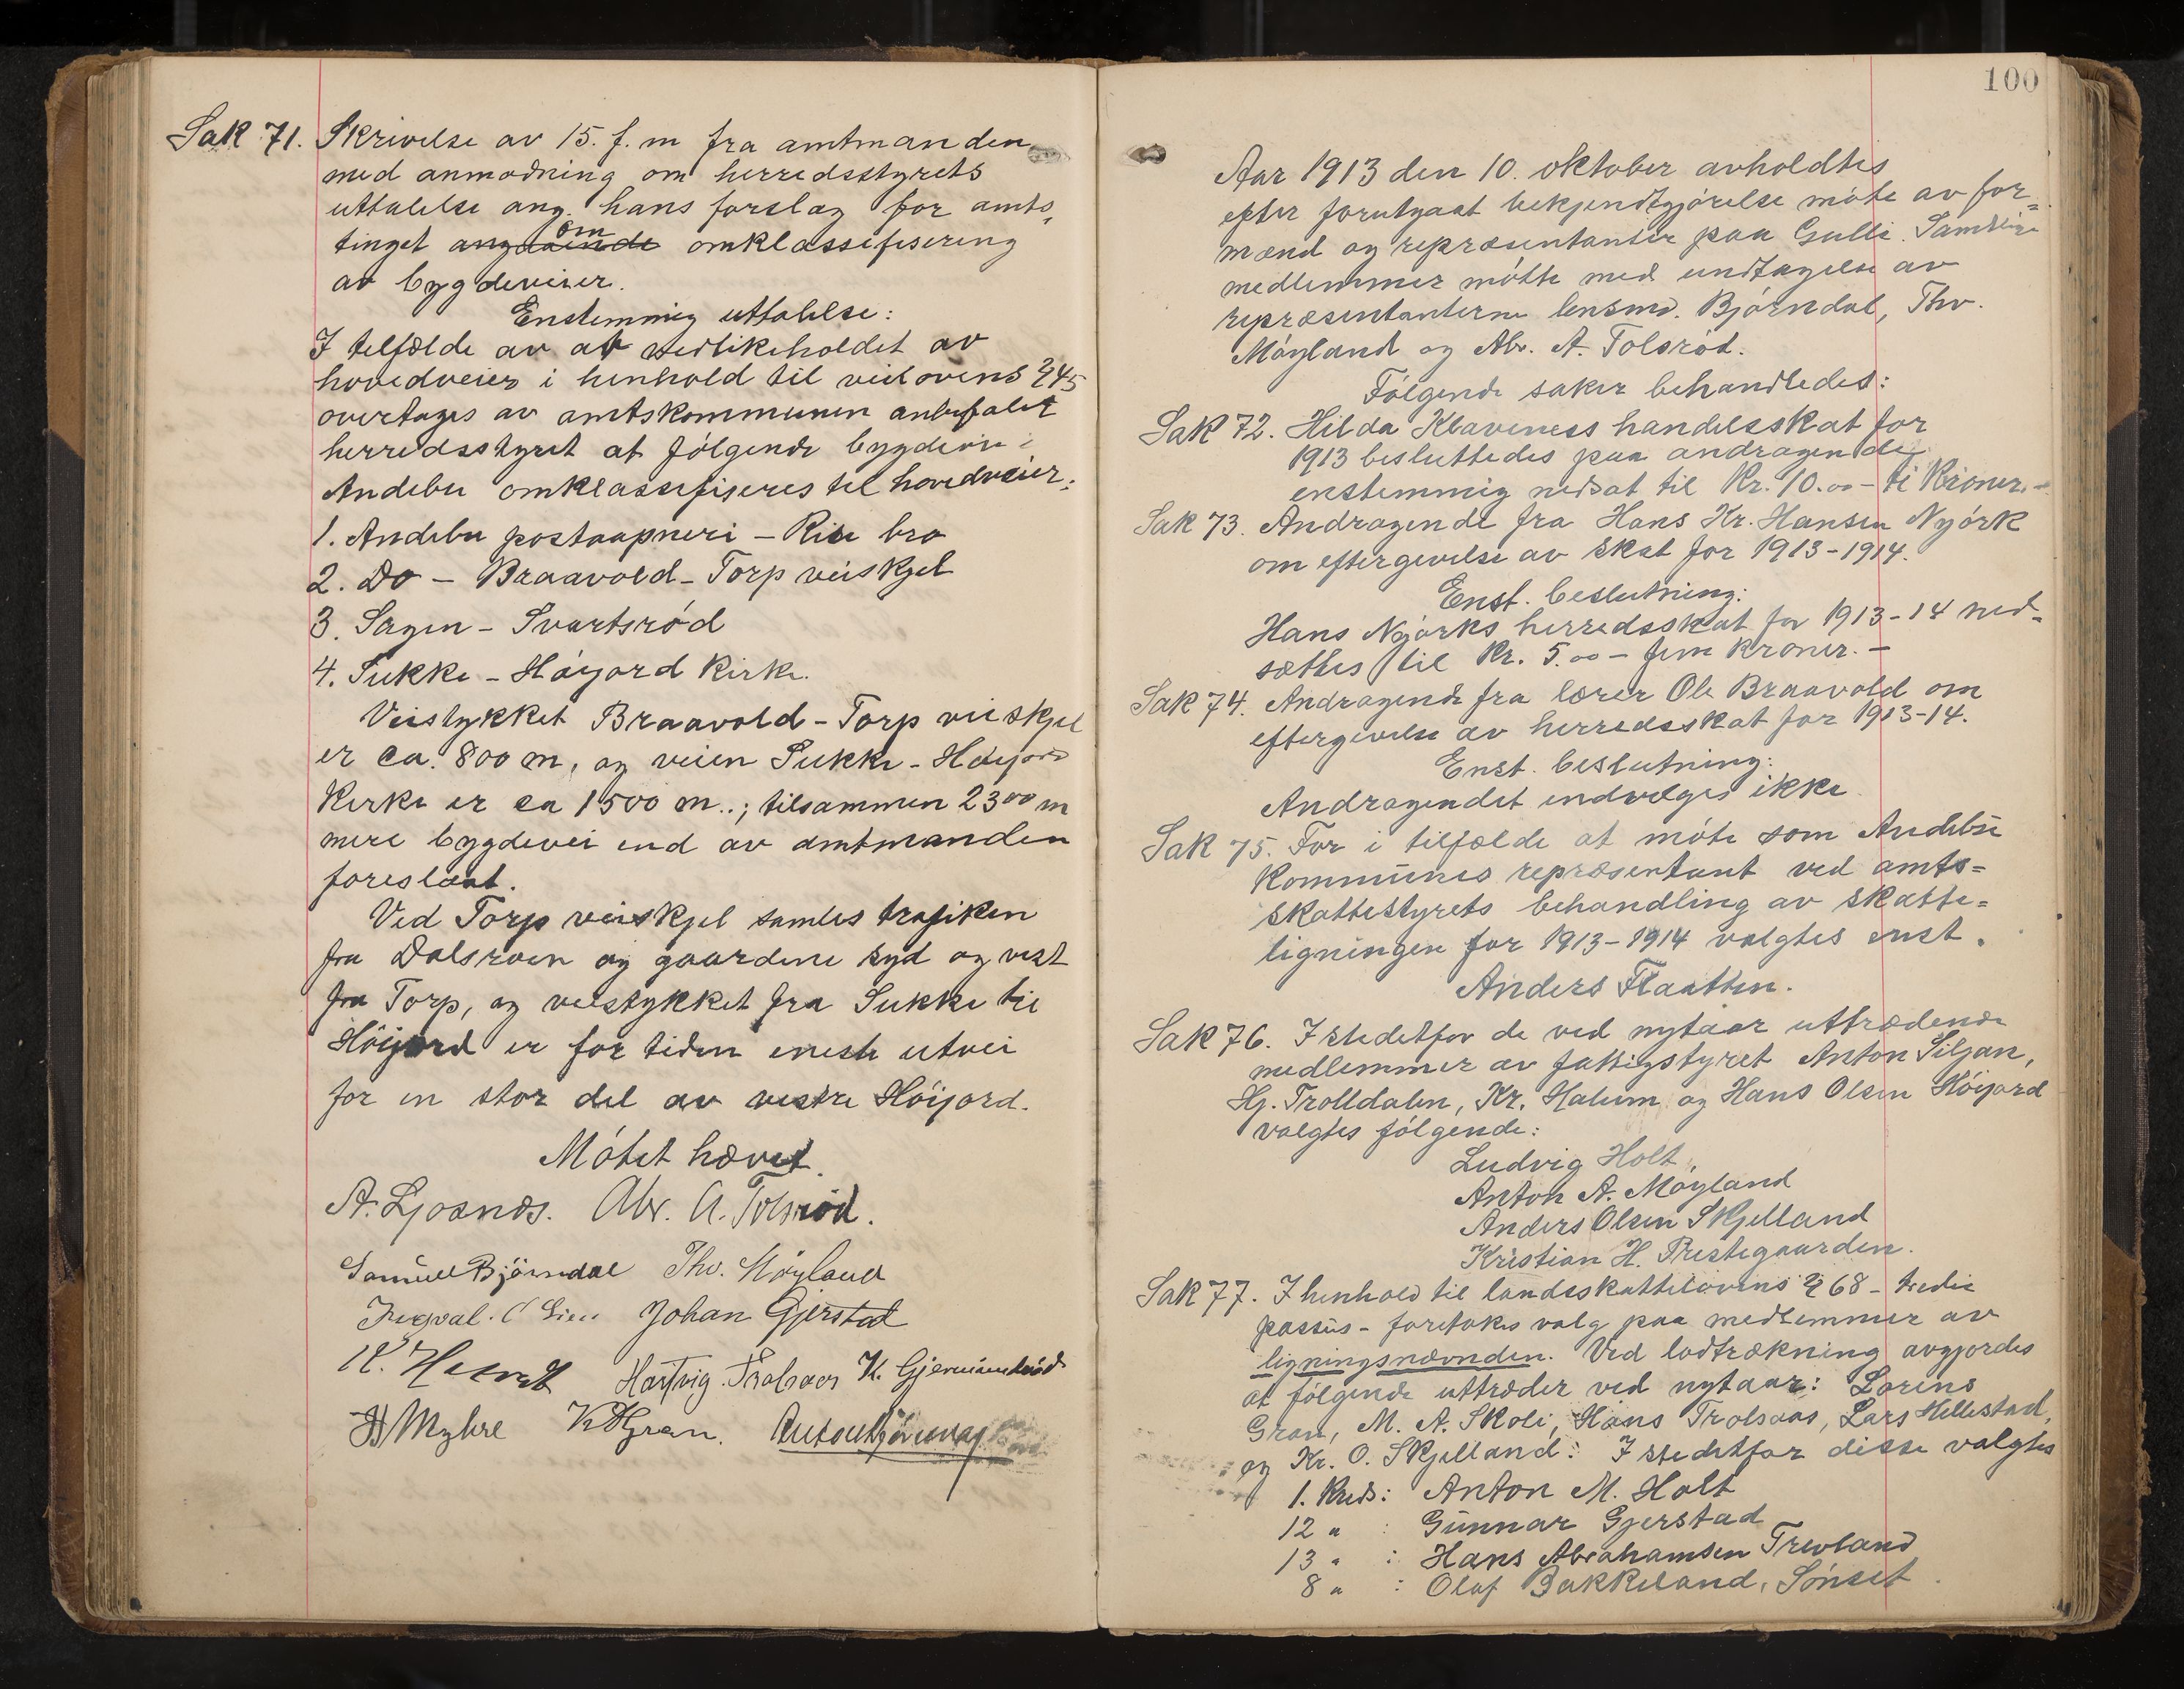 Sak 71. Skrivelse av 15. f. m fra amtmanden
med anmodning om herredsstyrets
uttalelse ang. hans forslag for amts-
tinget angaaende om omklassifisering
av bygdeveier.
Enstemmig uttalelse:
I tilfælde av at vedlikeholdet av
hovedveier i henhold til veilovens § 45
overtages av amtskommunen anbefaler
herredsstyret at følgende bygdevei i
Andebu omklassifiseres til hovedveier:
1. Andebu postaapneri - Rise bro
2. Do - Braavold - Torp veiskjel
3. Sagen - Svartsrød
4. Sukke - Høijord Kirke.
Veistykket Braavold - Torp veiskjel
er ca. 800 m, og veien Sukke - Høijord
Kirke er ca 1500 m..; tilsammen 2300 m
mere bygdevei end av amtmanden
foreslaat.
Ved Torp veiskjel samles trafiken
fra Dalsroen og gaardene syd og vest
fra Torp, og veistykket fra Sukke til
Høijord er for tiden eneste utvei
for en stor del av vestre Høijord.
Møtet hævet.
A. Ljosnæs. Abr. A. Tolsrød.
Samuel Bjørndal Thv. Møyland
Johan Gjerstad
Hartvig Trolsaas K.
Myhre K Gran.
100
Aar 1913 den 10. oktober avholdtes
efter forutgaat bekjendtgjørelse møte av for-
mænd og repræsentanter paa Gulli. Samtlige
medlemmer møtte med undtagelse av
repræsentanterne lensmd. Bjørndal, Thv.
Møyland og Abr. A. Tolsrød.
Følgende saker behandledes:
Sak 72. Hilda Klaveness handelsskat for
1913 besluttedes paa andragende
enstemmig nedsat til Kr. 10.00 - ti Kroner. -
Sak 73. Andragende fra Hans Kr. Hansen Nyørk
om eftergivelse av skat for 1913-1914.
Enst. beslutning:
Hans Nyørks herredsskat for 1913-14 ned-
sættes til Kr. 5.00 - fem kroner. -
Sak 74. Andragende fra lærer Ole Braavold om
eftergivelse av herredsskat for 1913-14.
Enst. beslutning:
Andragendet indvilges ikke.
Sak 75. For i tilfælde at møte som Andebu
Kommunes repræsentant ved amts=
skattestyrets behandling av skatte=
ligningen for 1913-1914 valgtes enst.
Anders Flaatten.
Sak 76. I stedetfor de ved nytaar uttrædende
medlemmer av fattigstyret Anton Siljan,
Hj. Trolldalen, Kr. Halum og Hans Olsen Høijord
valgtes følgende:
Ludvig Holt,
Anton A. Møyland
Anders Olsen Skjelland
Kristian H. Prestegaarden.
Sak 77. I henhold til landsskattelovens § 68 - tredie
passus - foretokes valg paa medlemmer av
ligningsnævnden. Ved lodtrækning avgjordes
at følgende uttræder ved nytaar: Lorens
Gran, M. A. Skoli, Hans Trolsaas, Lars Hillestad,
og Kr. O. Skjelland: I stedetfor disse valgtes
1. Kreds: Anton M. Holt
12 " : Gunnar Gjerstad
13 " : Hans Abrahamsen Trevland
8 " : Olaf Bakkeland, Sønset.